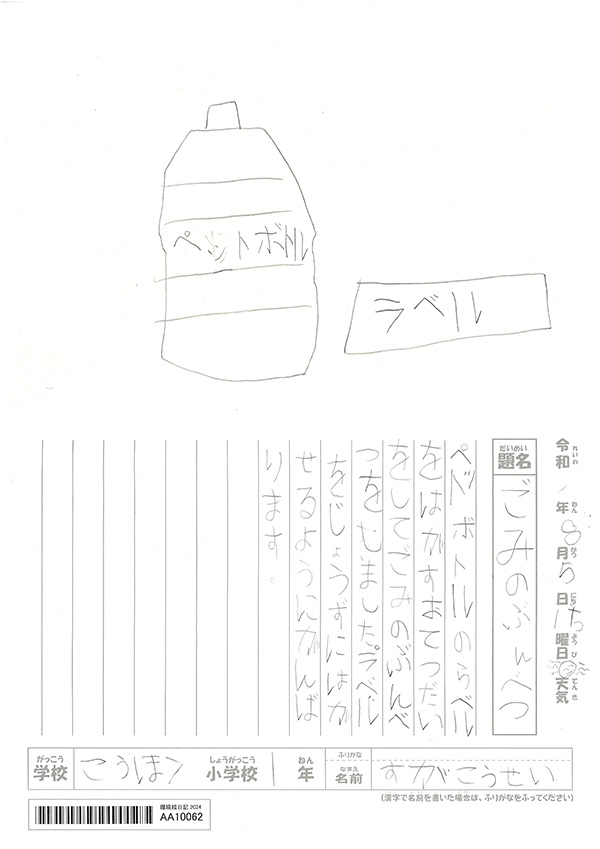 ペットボトル
ラベル
令和 1年8月5日げつ曜日 天気
れいわ ねん がつ にち ようび てんき
だいめい
題名
ごみのぶんべつ
ペットボトルのらベル
をはがすおてつだい
をしてごみのぶんべ
つをしました。ラベル
をじょうずにはが
せるようにがんば
ります。
がっこう しょうがっこう ねん ふりがな
学校 こうほく 小学校 1 年 名前 すがこうせい
なまえ
(漢字で名前を書いた場合は、ふりがなをふってください)
環境絵日記 2024
AA10062